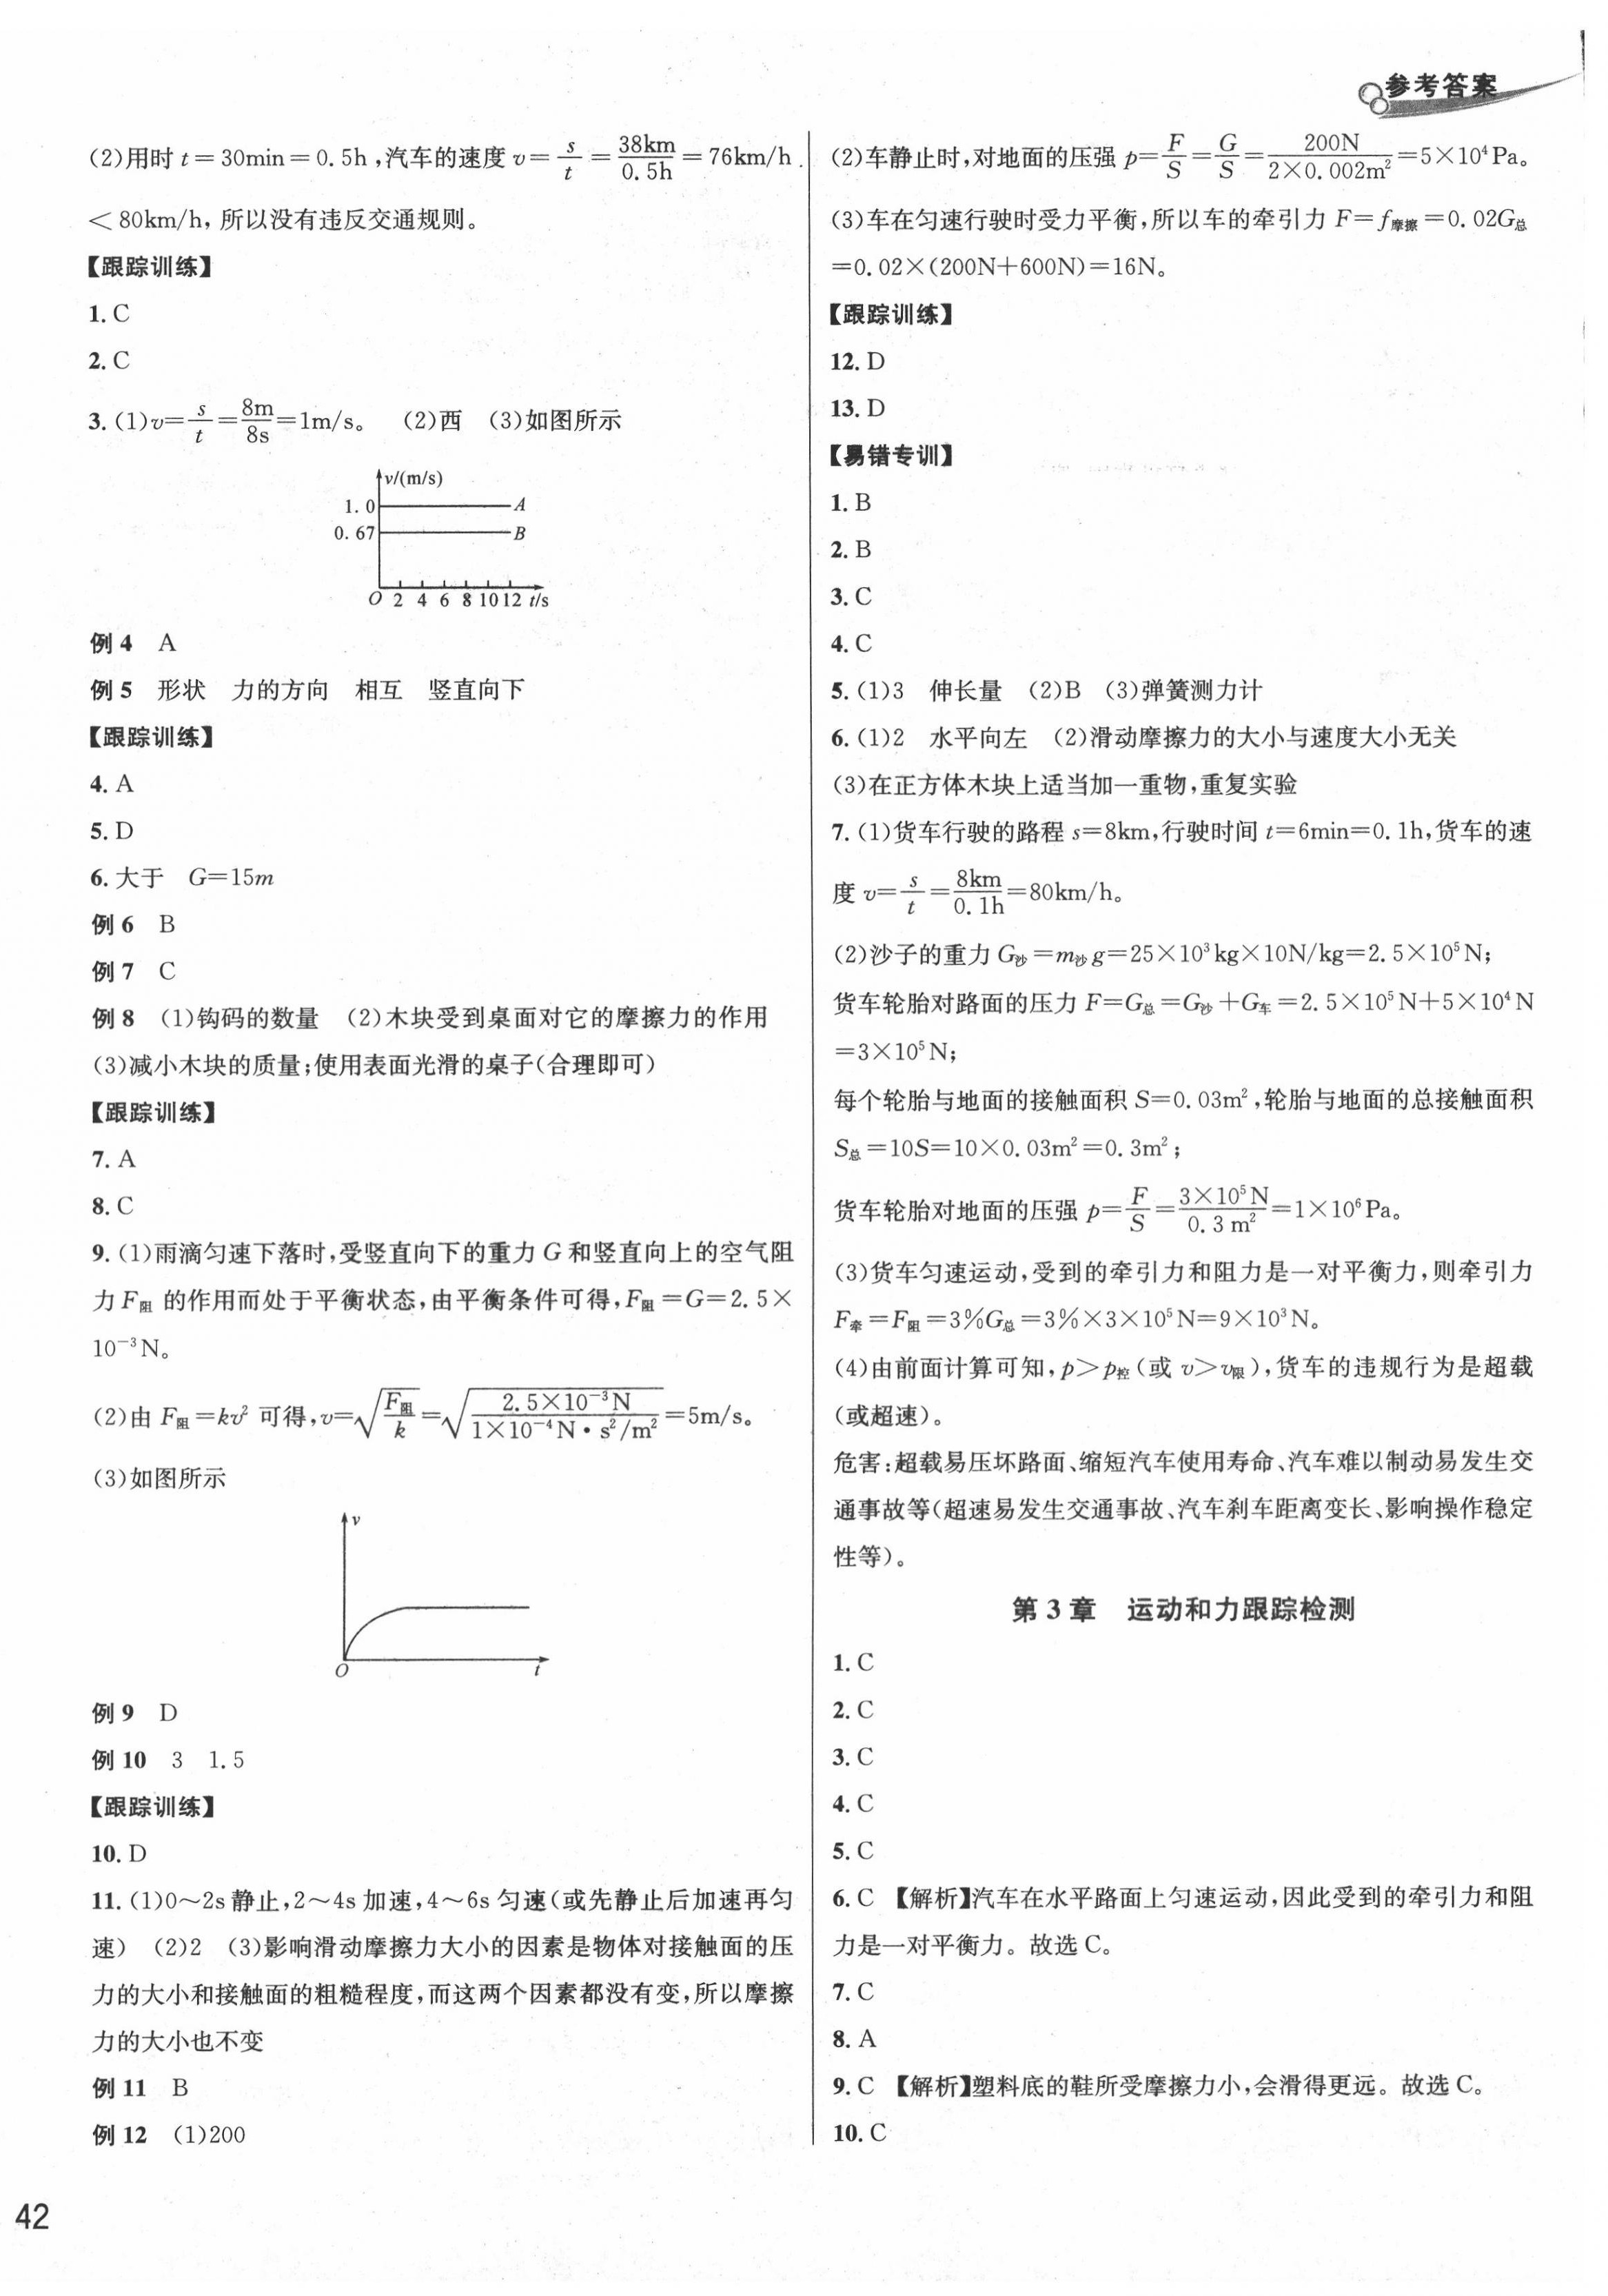 参考答案
(2)用时 t＝30min＝0.5h,汽车的速度 v＝s/t＝38km/0.5h＝76km/h
＜80km/h,所以没有违反交通规则。
【跟踪训练】
1. C
2. C
3. (1)v＝s/t＝8m/8s＝1m/s。 (2)西 (3)如图所示
v/(m/s)
1.0 A
0.67 B
O 2 4 6 8 10 12 t/s
例 4 A
例 5 形状 力的方向 相互 竖直向下
【跟踪训练】
4. A
5. D
6. 大于 G＝15m
例 6 B
例 7 C
例 8 (1)钩码的数量 (2)木块受到桌面对它的摩擦力的作用
(3)减小木块的质量;使用表面光滑的桌子(合理即可)
【跟踪训练】
7. A
8. C
9. (1)雨滴匀速下落时,受竖直向下的重力 G 和竖直向上的空气阻
力 F阻 的作用而处于平衡状态,由平衡条件可得,F阻＝G＝2.5×
10⁻³N。
(2)由 F阻＝kv² 可得,v＝√(F阻/k)＝√(2.5×10⁻³N/1×10⁻⁴N·s²/m²)＝5m/s。
(3)如图所示
v
O t
例 9 D
例 10 3 1.5
【跟踪训练】
10. D
11. (1)0～2s 静止,2～4s 加速,4～6s 匀速(或先静止后加速再匀
速) (2)2 (3)影响滑动摩擦力大小的因素是物体对接触面的压
力的大小和接触面的粗糙程度,而这两个因素都没有变,所以摩擦
力的大小也不变
例 11 B
例 12 (1)200
(2)车静止时,对地面的压强 p＝F/S＝G/S＝200N/2×0.002m²＝5×10⁴Pa。
(3)车在匀速行驶时受力平衡,所以车的牵引力 F＝f摩擦＝0.02G总
＝0.02×(200N＋600N)＝16N。
【跟踪训练】
12. D
13. D
【易错专训】
1. B
2. B
3. C
4. C
5. (1)3 伸长量 (2)B (3)弹簧测力计
6. (1)2 水平向左 (2)滑动摩擦力的大小与速度大小无关
(3)在正方体木块上适当加一重物,重复实验
7. (1)货车行驶的路程 s＝8km,行驶时间 t＝6min＝0.1h,货车的速
度 v＝s/t＝8km/0.1h＝80km/h。
(2)沙子的重力 G沙＝m沙g＝25×10³kg×10N/kg＝2.5×10⁵N;
货车轮胎对路面的压力 F＝G总＝G沙＋G车＝2.5×10⁵N＋5×10⁴N
＝3×10⁵N;
每个轮胎与地面的接触面积 S＝0.03m²,轮胎与地面的总接触面积
S总＝10S＝10×0.03m²＝0.3m²;
货车轮胎对地面的压强 p＝F/S＝3×10⁵N/0.3m²＝1×10⁶Pa。
(3)货车匀速运动,受到的牵引力和阻力是一对平衡力,则牵引力
F牵＝F阻＝3%G总＝3%×3×10⁵N＝9×10³N。
(4)由前面计算可知,p＞p控(或 v＞v限),货车的违规行为是超载
(或超速)。
危害:超载易压坏路面、缩短汽车使用寿命、汽车难以制动易发生交
通事故等(超速易发生交通事故、汽车刹车距离变长、影响操作稳定
性等)。
第 3 章 运动和力跟踪检测
1. C
2. C
3. C
4. C
5. C
6. C 【解析】汽车在水平路面上匀速运动,因此受到的牵引力和阻
力是一对平衡力。故选 C。
7. C
8. A
9. C 【解析】塑料底的鞋所受摩擦力小,会滑得更远。故选 C。
10. C
42